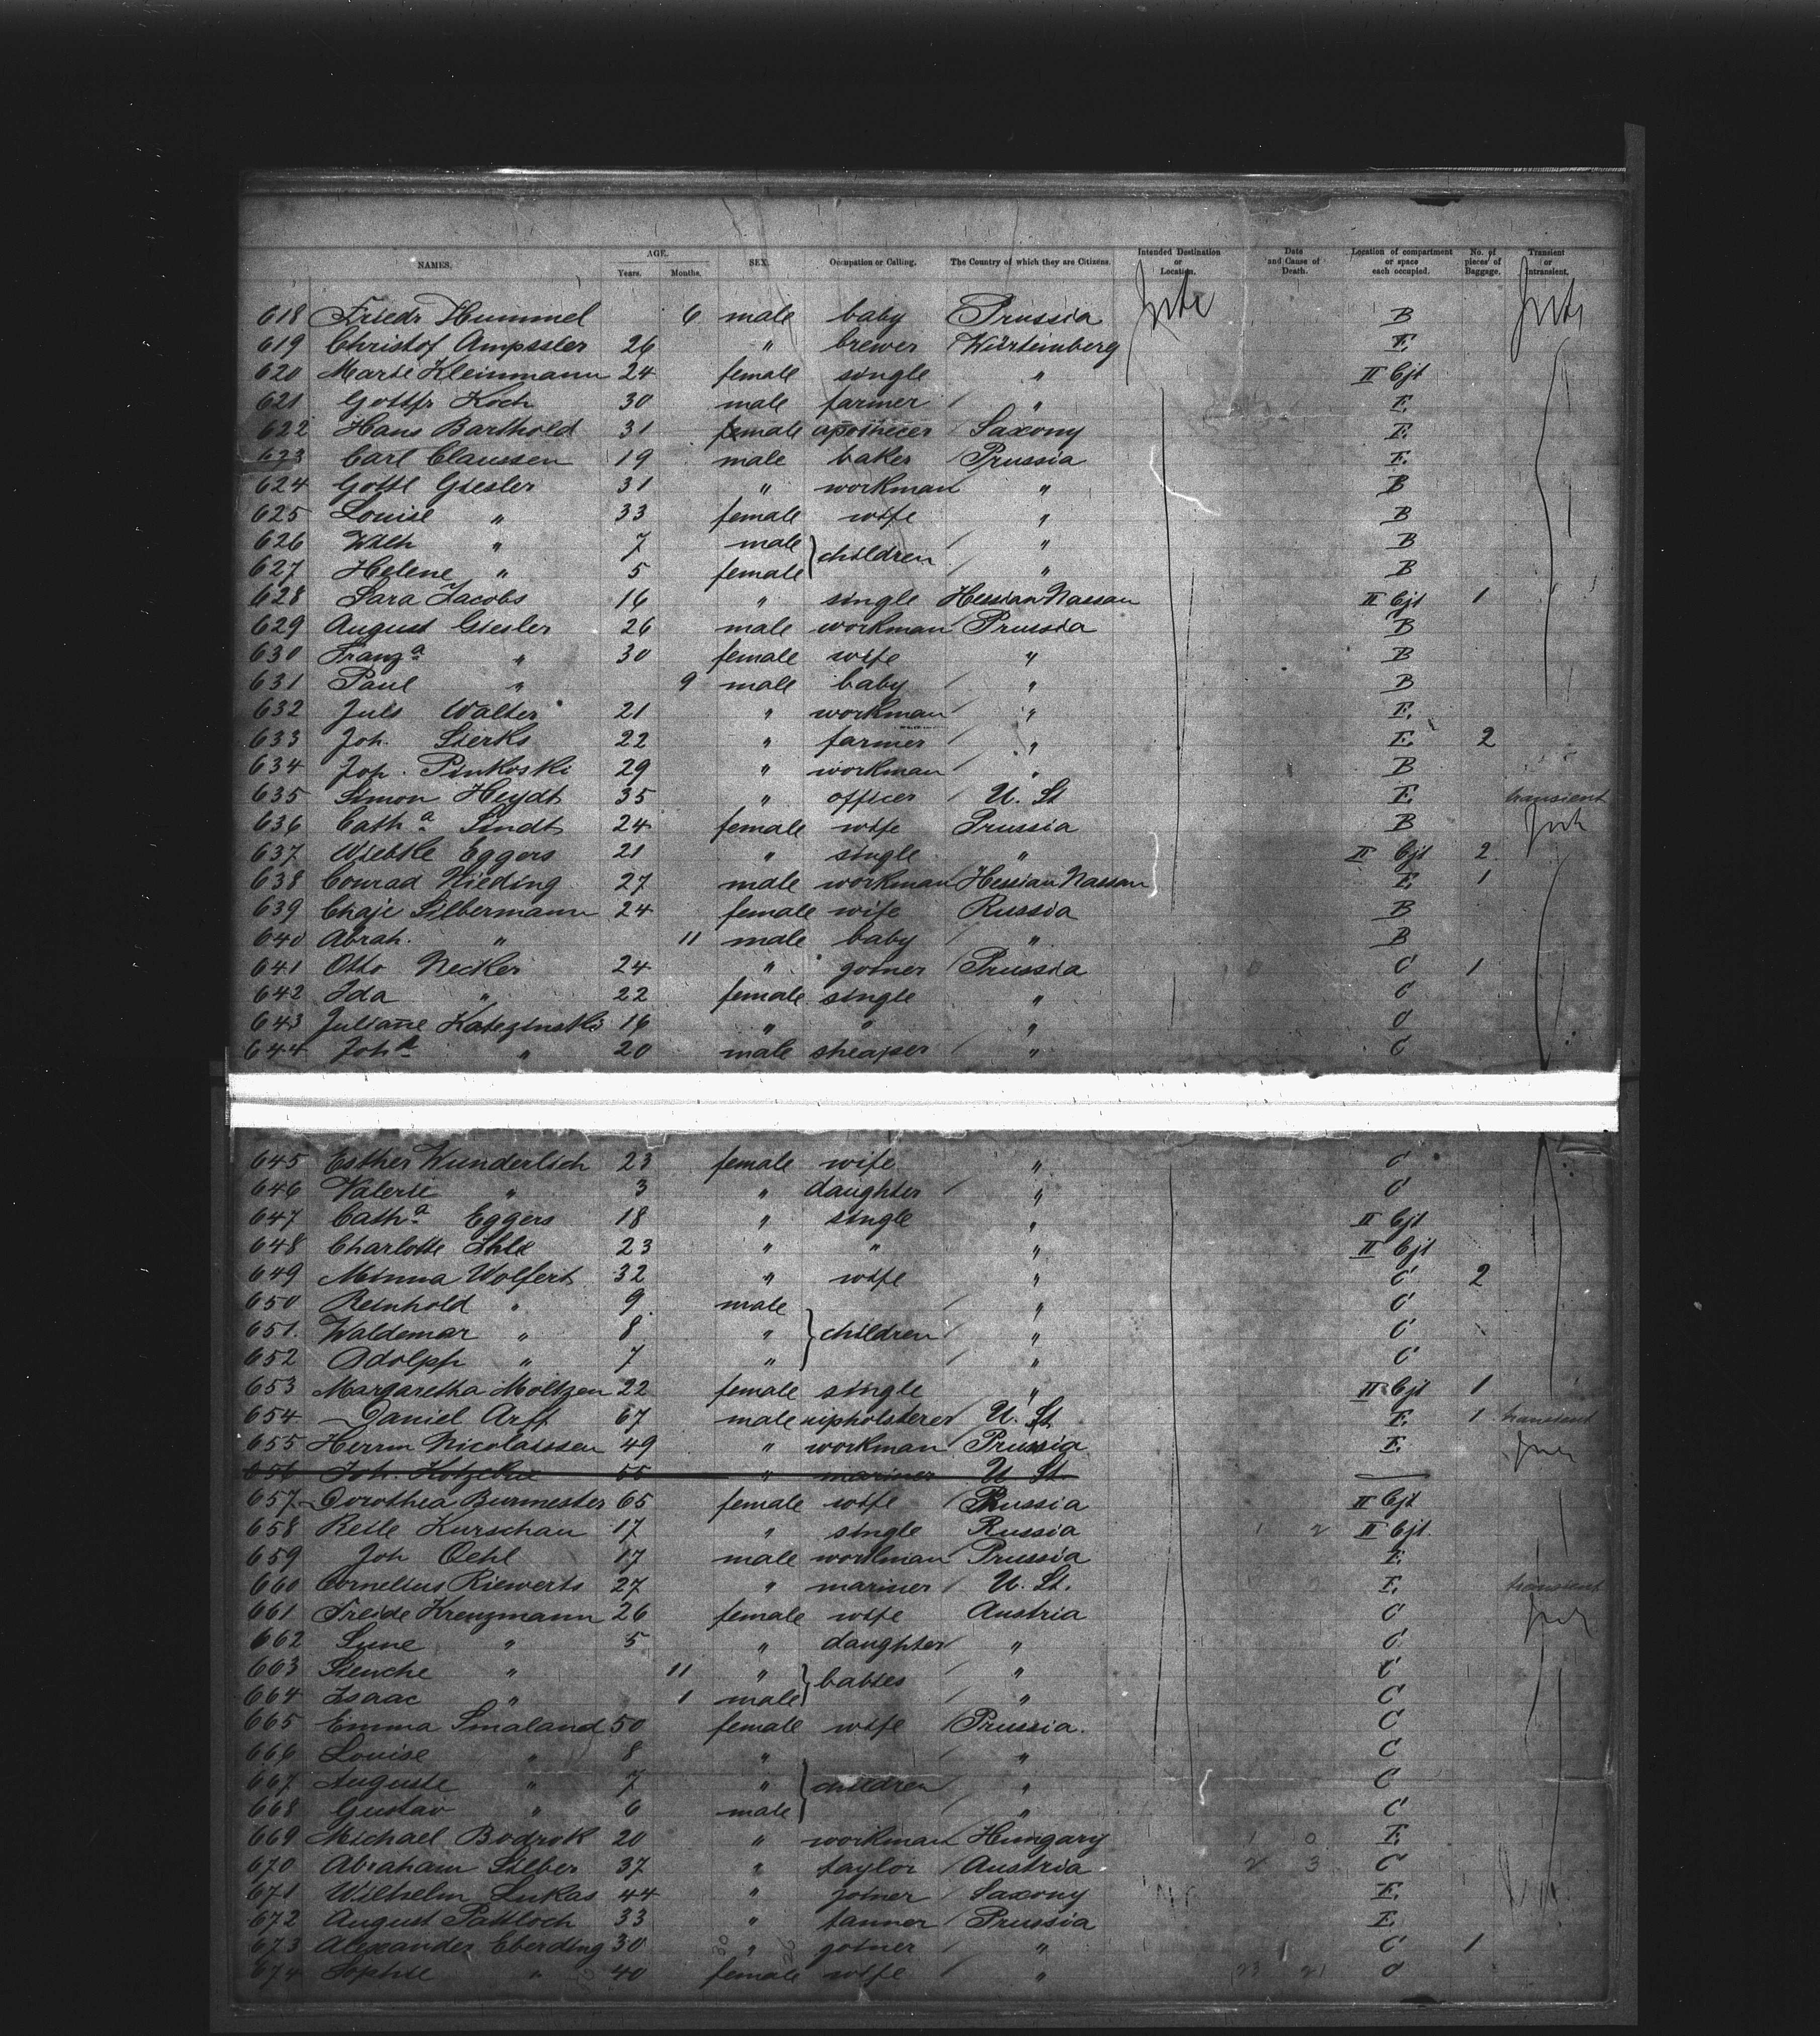 NAMES. AGE. Years. Months. SEX. Occupation or Calling. The Country of which they are Citizens. Intended Destination or Location. Date and Cause of Death. Location of compartment or space each occupied. No. of pieces of Baggage. Transient or Intransient.
618 Friedr Hummel 6 male baby Prussia B
619 Christof Ampssler 26 " brewer Würtemberg E.
620 Marie Kleinmann 24 female single " II Cjt
621 Gottfr Koch 30 male farmer " E.
622 Hans Barthold 31 male apothecer Saxony E.
623 Carl Claussen 19 male baker Prussia E.
624 Gottl Giesler 31 " workman " B
625 Louise " 33 female wife " B
626 Wilh " 7 male children " B
627 Helene " 5 female " B
628 Sara Jacobs 16 " single Hessian Nassau II Cjt 1
629 August Giesler 26 male workman Prussia B
630 Franza " 30 female wife " B
631 Paul " 9 male baby " B
632 Juls Walter 21 " workman " E.
633 Joh. Sierks 22 " farmer " E. 2
634 Jos. Pinkoski 29 " workman " B
635 Simon Heydt 35 " officer U. St E. transient
636 Catha Lindt 24 female wife Prussia B
637 Wiebke Eggers 21 " single " II Cjt 2
638 Conrad Nieding 27 male workman Hessian Nassau E. 1
639 Chaje Silbermann 24 female wife Russia B
640 Abrah. " 11 male baby " B
641 Otto Necker 24 " joiner Prussia C 1
642 Ida " 22 female single " C
643 Juliane Katezinski 16 " " " C
644 Joh " 20 male sheaper " C
645 Esther Wunderlich 23 female wife " C
646 Valerie " 3 " daughter " C
647 Catha Eggers 18 " single " II Cjt
648 Charlotte Ihle 23 " " " II Cjt
649 Minna Wolfert 32 " wife " C 2
650 Reinhold " 9 male " C
651. Waldemar " 8 " children " C
652 Adolph " 7 " " C
653 Margaretha Moltzen 22 female single " II Cjt 1
654 Daniel Arft 67 male upholsterer U. St E. 1 transient
655 Herrm Nicolaissen 49 " workman Prussia E.
656 Joh. Kotzebue 55 " mariner U St
657 Dorothea Burmester 65 female wife Prussia II Cjt
658 Reile Kurschan 17 " single Russia II Cjt
659 Joh Oehl 17 male workman Prussia E.
660 Cornelius Riewerts 27 " mariner U. St. E. transient
661 Freide Krenzmann 26 female wife Austria C
662 Sune " 5 " daughter " C
663 Sienche " 11 " babies " C
664 Isaac " 1 male " C
665 Emma Smaland 50 female wife Prussia. C
666 Louise " 8 " " C
667 Auguste " 7 " children " C
668 Gustav " 6 male " C
669 Michael Bodrok 20 " workman Hungary E.
670 Abraham Silber 37 " taylor Austria. C
671 Wilhelm Lukas 44 " joiner Saxony E.
672 August Pattloch 33 " tanner Prussia E.
673 Alexander Eberding 30 " joiner " C 1
674 Sophie " 40 female wife " C